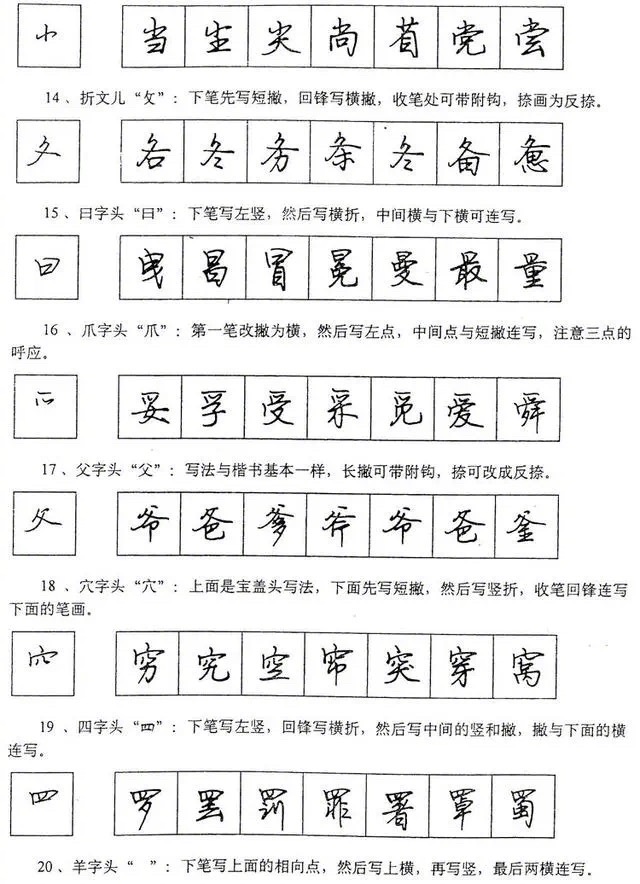 小 当 生 尖 尚 苜 党 尝
14、折文儿“攵”：下笔先写短撇，回锋写横撇，收笔处可带附钩，捺画为反捺。
夂 各 冬 务 条 冬 备 惫
15、曰字头“曰”：下笔写左竖，然后写横折，中间横与下横可连写。
曰 曳 昌 冒 冕 曼 最 量
16、爪字头“爪”：第一笔改撇为横，然后写左点，中间点与短撇连写，注意三点的
呼应。
爫 妥 孚 受 采 觅 爱 舜
17、父字头“父”：写法与楷书基本一样，长撇可带附钩，捺可改成反捺。
父 爷 爸 爹 斧 爷 爸 釜
18、穴字头“穴”：上面是宝盖头写法，下面先写短撇，然后写竖折，收笔回锋连写
下面的笔画。
穴 穷 究 空 帘 突 穿 窝
19、四字头“罒”：下笔写左竖，回锋写横折，然后写中间的竖和撇，撇与下面的横
连写。
罒 罗 罢 罚 罪 署 罩 蜀
20、羊字头“ ”：下笔写上面的相向点，然后写上横，再写竖，最后两横连写。